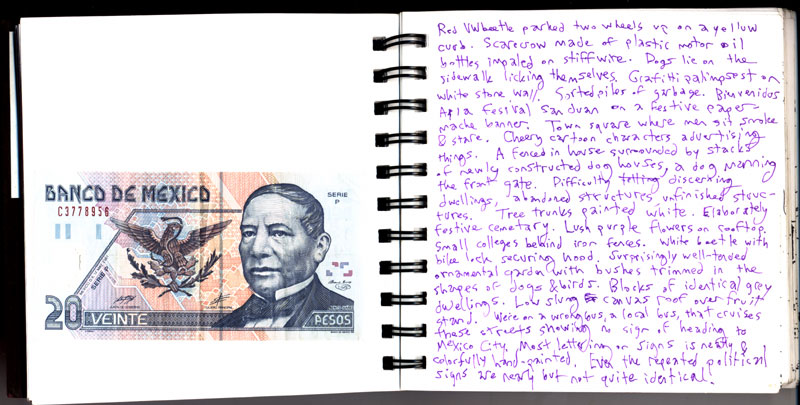 BANCO DE MEXICO
C3778956
SERIE
P
SERIE P
20
VEINTE
PESOS
Red VW beetle parked two wheels up on a yellow
curb. Scarecrow made of plastic motor oil
bottles impaled on stiff wire. Dogs lie on the
sidewalk licking themselves. Graffiti palimpsest on
white stone wall. Sorted piles of garbage. Bienvenidos
A la Festival San Juan on a festive paper-
mache banner. Town square where men sit smoke
& stare. Cheery cartoon characters advertising
things. A fenced in house surrounded by stacks
of newly constructed dog houses, a dog manning
the front gate. Difficulty telling discerning
dwellings, abandoned structures, unfinished struc-
tures. Tree trunks painted white. Elaborately
festive cemetary. Lush purple flowers on rooftop.
Small colleges behind iron fences. White beetle with
bike lock securing hood. Surprisingly well-tended
ornamental garden with bushes trimmed in the
shapes of dogs & birds. Blocks of identical grey
dwellings. Low slung canvas roof over fruit
stand. We're on a wrong bus, a local bus, that cruises
these streets showing no sign of heading to
Mexico City. Most lettering on signs is neatly &
colorfully hand-painted. Even the repeated political
signs are nearly but not quite identical.